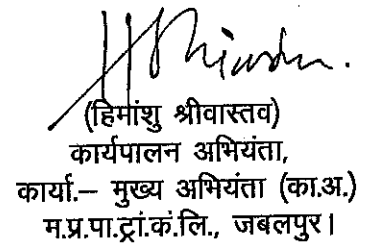 (हिमांशु श्रीवास्तव)
कार्यपालन अभियंता,
कार्या.– मुख्य अभियंता (का.अ.)
म.प्र.पा.ट्रां.कं.लि., जबलपुर।